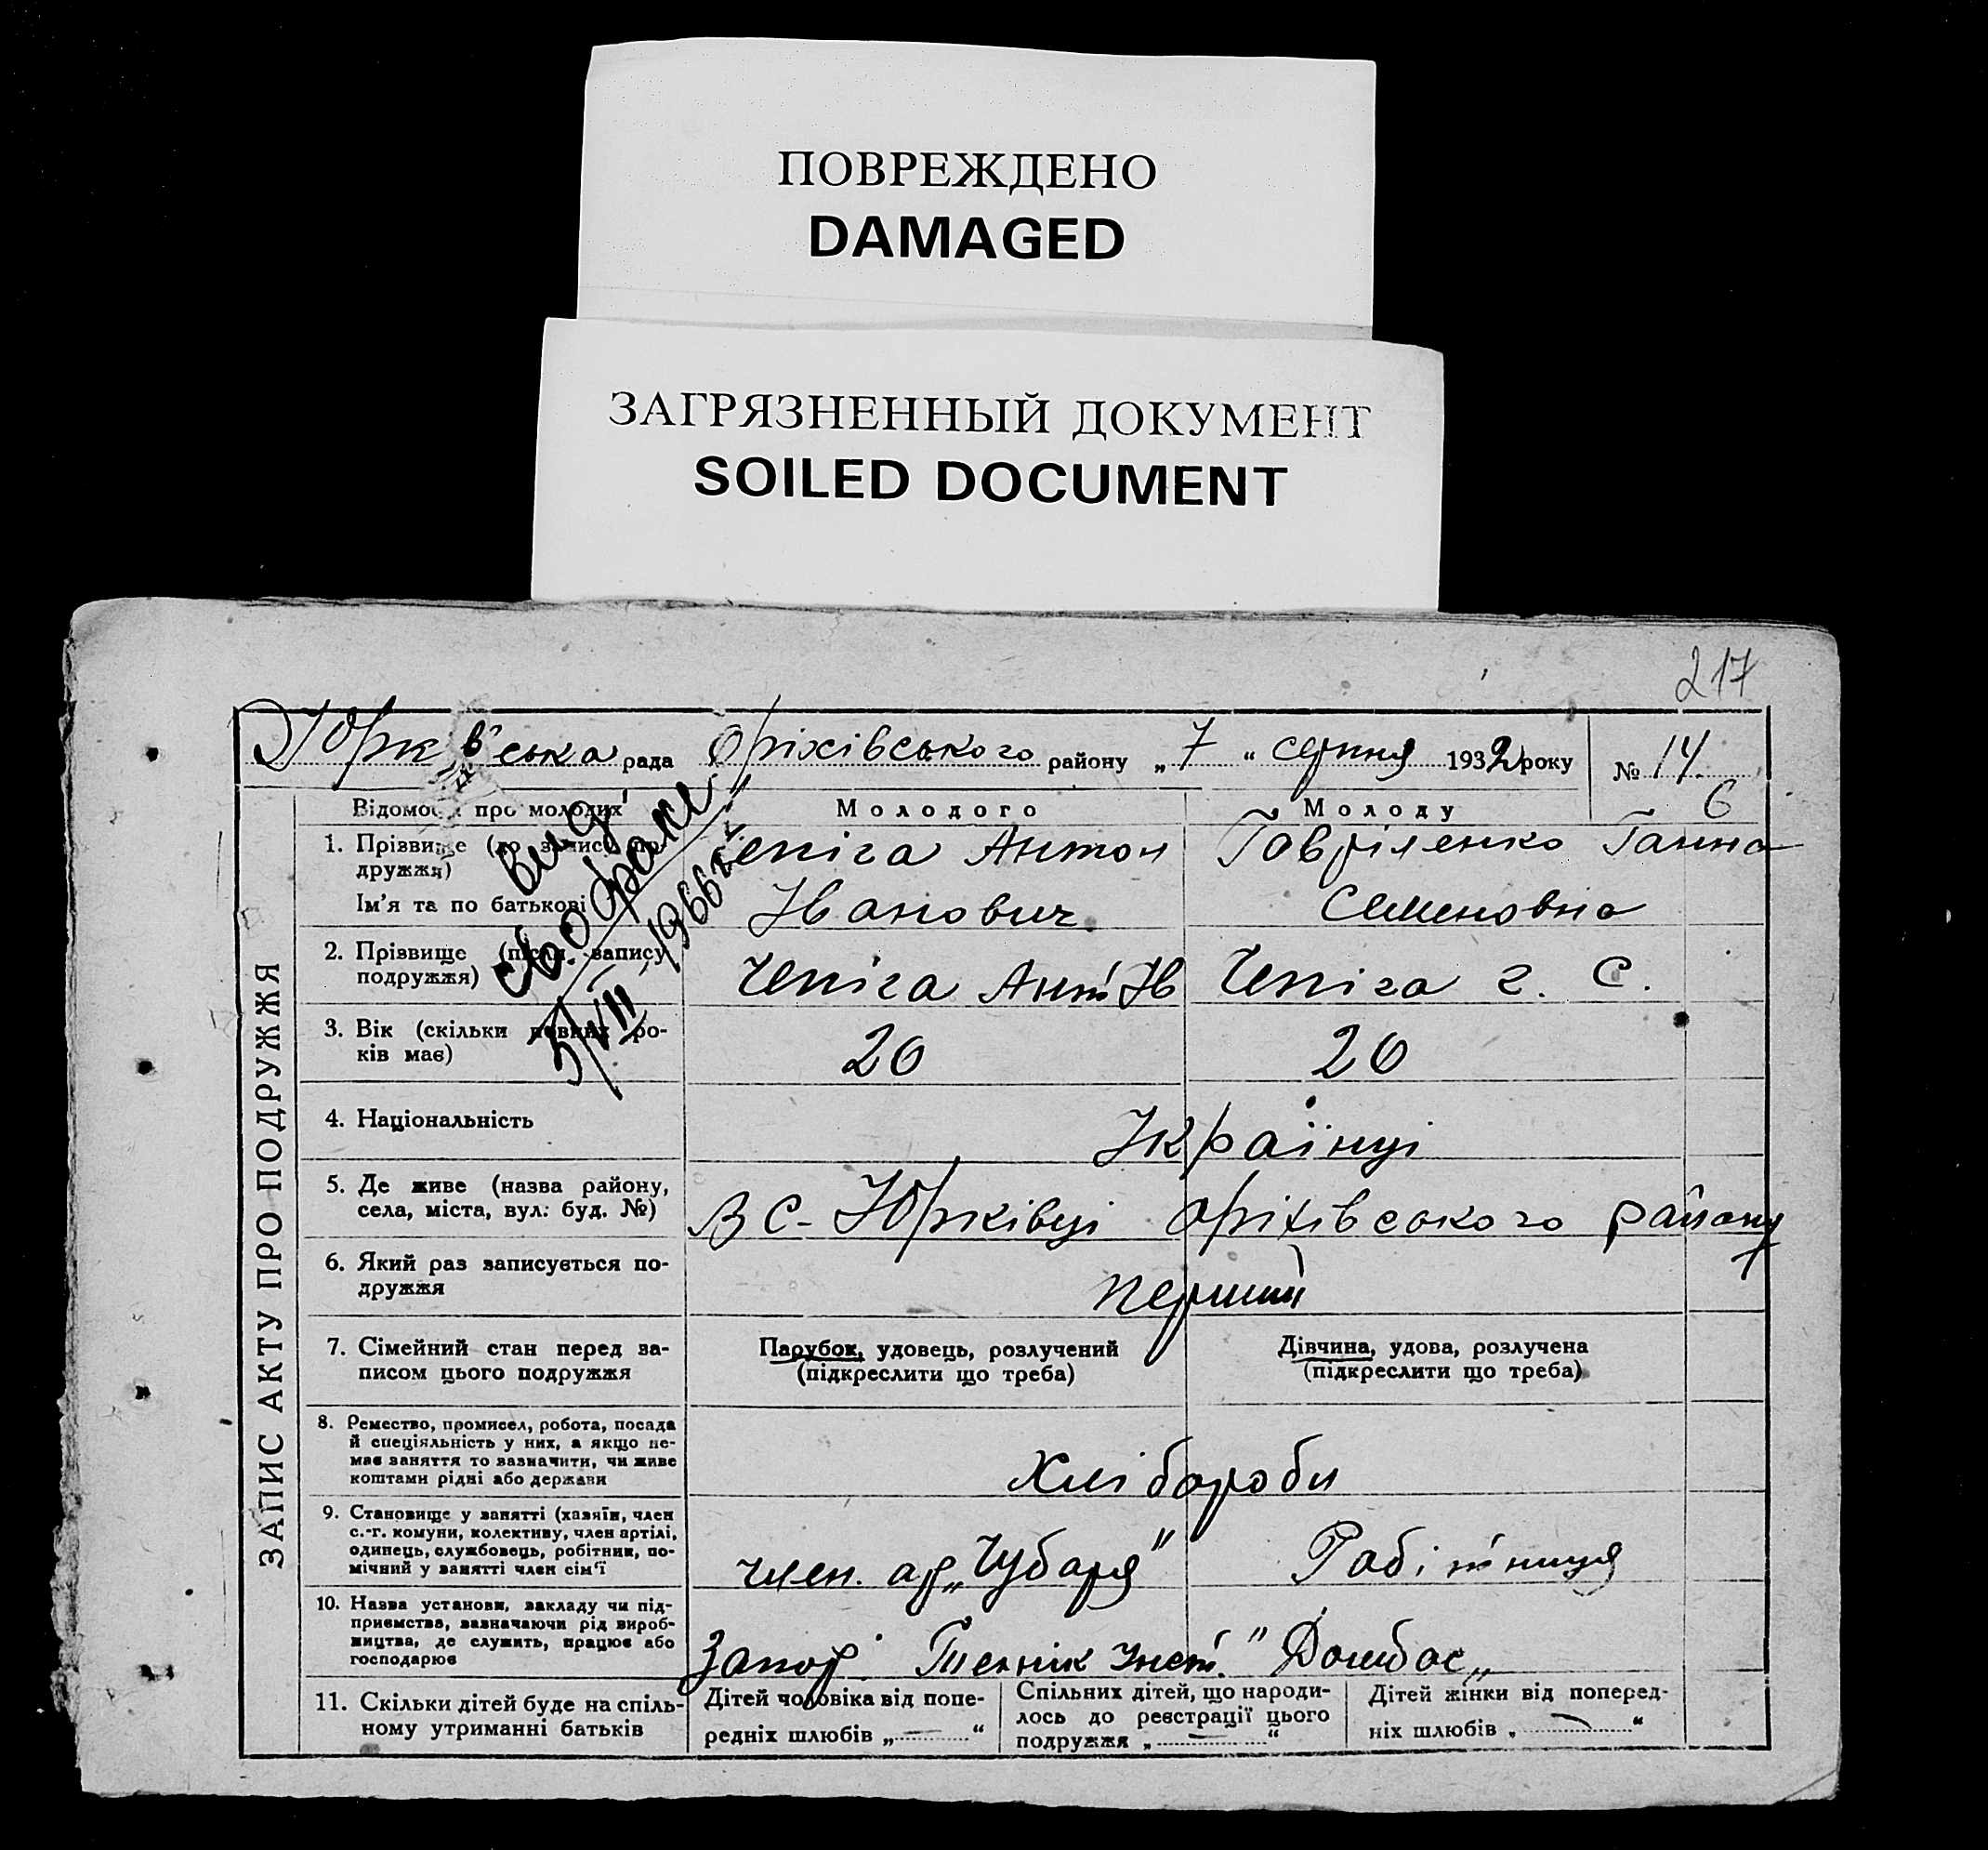 ПОВРЕЖДЕНО
DAMAGED
ЗАГРЯЗНЕННЫЙ ДОКУМЕНТ
SOILED DOCUMENT
217
Юрківська рада Оріхівського району „7“ серпня 1932 року № 14
6
ЗАПИС АКТУ ПРО ПОДРУЖЖЯ
Відомості про молодих Молодого Молоду
1. Прізвище (до запису по-
дружжя)
Ім'я та по батькові
Чепіга Антон
Іванович
Гавріленко Ганна
Семеновна
2. Прізвище (після запису
подружжя)
Чепіга Ант Ів
Чепіга Г. С.
3. Вік (скільки повних ро-
ків має)
20
20
4. Національність
Українці
5. Де живе (назва району,
села, міста, вул. буд. №)
В с- Юрківці Оріхівського району
6. Який раз записується по-
дружжя
перший
7. Сімейний стан перед за-
писом цього подружжя
Парубок, удовець, розлучений
(підкреслити що треба)
Дівчина, удова, розлучена
(підкреслити що треба)
8. Ремество, промисел, робота, посада
й спеціяльність у них, а якщо не-
має заняття то зазначити, чи живе
коштами рідні або держави
Хлібороби
9. Становище у занятті (хазяїн, член
с.-г. комуни, колективу, член артілі,
одинець, службовець, робітник, по-
мічний у занятті член сім'ї
член. ар „Чубаря"
Робітниця
10. Назва установи, закладу чи під-
приємства, зазначаючи рід вироб-
ництва, де служить, працює або
господарює
Запор. Технік Інст. " Домбас„
11. Скільки дітей буде на спіль-
ному утриманні батьків
Дітей чоловіка від попе-
редніх шлюбів „—“
Спільних дітей, що народи-
лось до реєстрації цього
подружжя „—“
Дітей жінки від поперед-
ніх шлюбів „—“
Вид
о браке
5/VIII 1966 г.